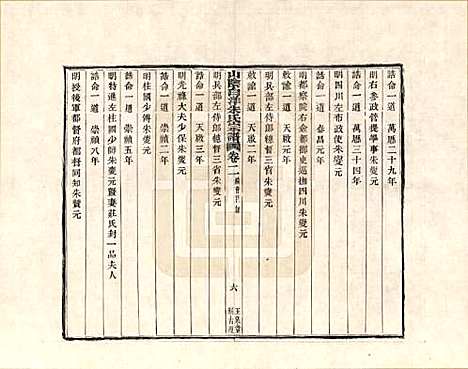 誥命一道 萬厯二十九年
明右參政督提學事朱燮元
誥命一道 萬厯三十四年
明四川左布政使朱燮元
誥命一道 泰昌元年
明都察院右僉都御史巡撫四川朱燮元
敕諭一道 天啟元年
明兵部左侍郎總督三省朱燮元
敕諭一道 天啟二年
山陰白洋朱氏宗譜 卷二
六
玉泉堂
明兵部左侍郎總督三省朱燮元
誥命一道 天啟三年
明光祿大夫少保朱燮元
誥命一道 崇禎二年
明柱國少傅朱燮元
誥命一道 崇禎五年
明特進左柱國少師朱燮元暨妻莊氏封一品夫人
誥命一道 崇禎八年
明授後軍都督府都督同知朱燮元